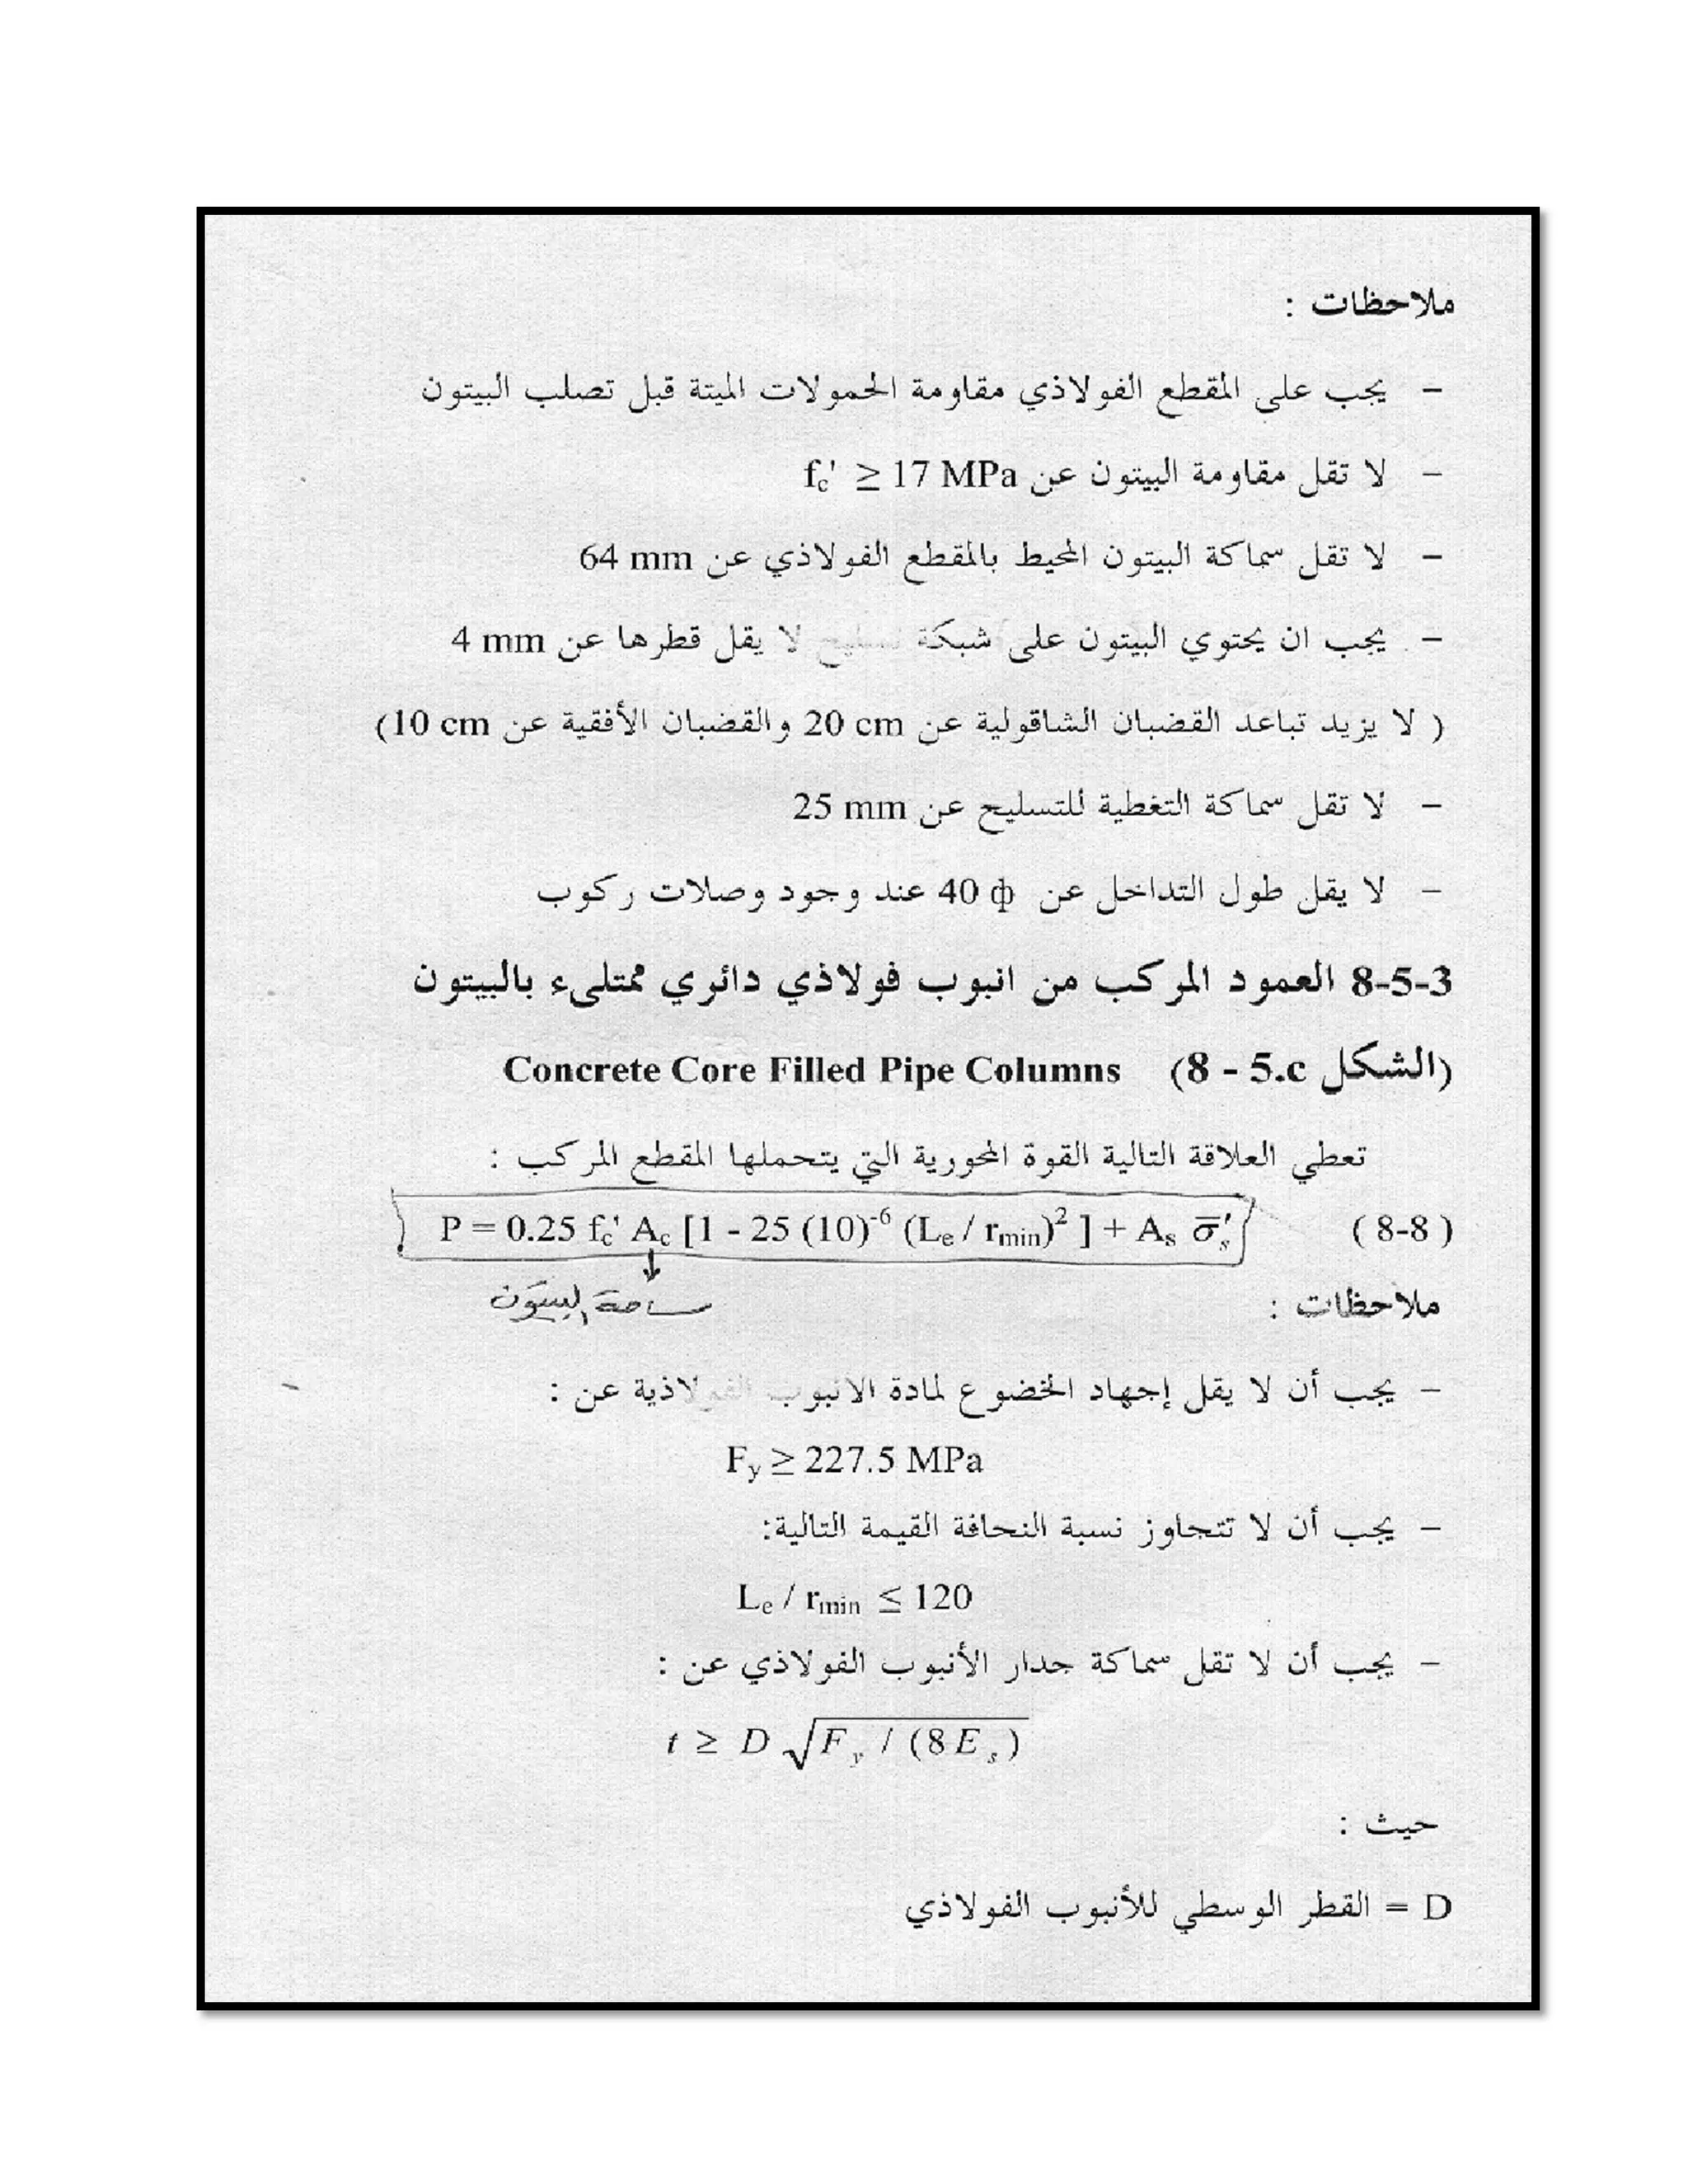 ملاحظات :
– يجب على المقطع الفولاذي مقاومة الحمولات الميتة قبل تصلب البيتون
– لا تقل مقاومة البيتون عن fc' ≥ 17 MPa
– لا تقل سماكة البيتون المحيط بالمقطع الفولاذي عن 64 mm
– يجب ان يحتوي البيتون على شبكة تسليح لا يقل قطرها عن 4 mm
( لا يزيد تباعد القضبان الشاقولية عن 20 cm والقضبان الأفقية عن 10 cm)
– لا تقل سماكة التغطية للتسليح عن 25 mm
– لا يقل طول التداخل عن 40 ф عند وجود وصلات ركوب
8-5-3 العمود المركب من انبوب فولاذي دائري ممتلىء بالبيتون
(الشكل 8 - 5.c) Concrete Core Filled Pipe Columns
تعطي العلاقة التالية القوة المحورية التي يتحملها المقطع المركب :
P = 0.25 fc' Ac [1 - 25 (10)⁻⁶ (Le / rmin)² ] + As σ̅s' ( 8-8 )
ساحة البيتون
ملاحظات :
– يجب أن لا يقل إجهاد الخضوع لمادة الانبوب الفولاذية عن :
Fy ≥ 227.5 MPa
– يجب أن لا تتجاوز نسبة النحافة القيمة التالية:
Le / rmin ≤ 120
– يجب أن لا تقل سماكة جدار الأنبوب الفولاذي عن :
t ≥ D √Fy / (8 Es)
حيث :
D = القطر الوسطي للأنبوب الفولاذي